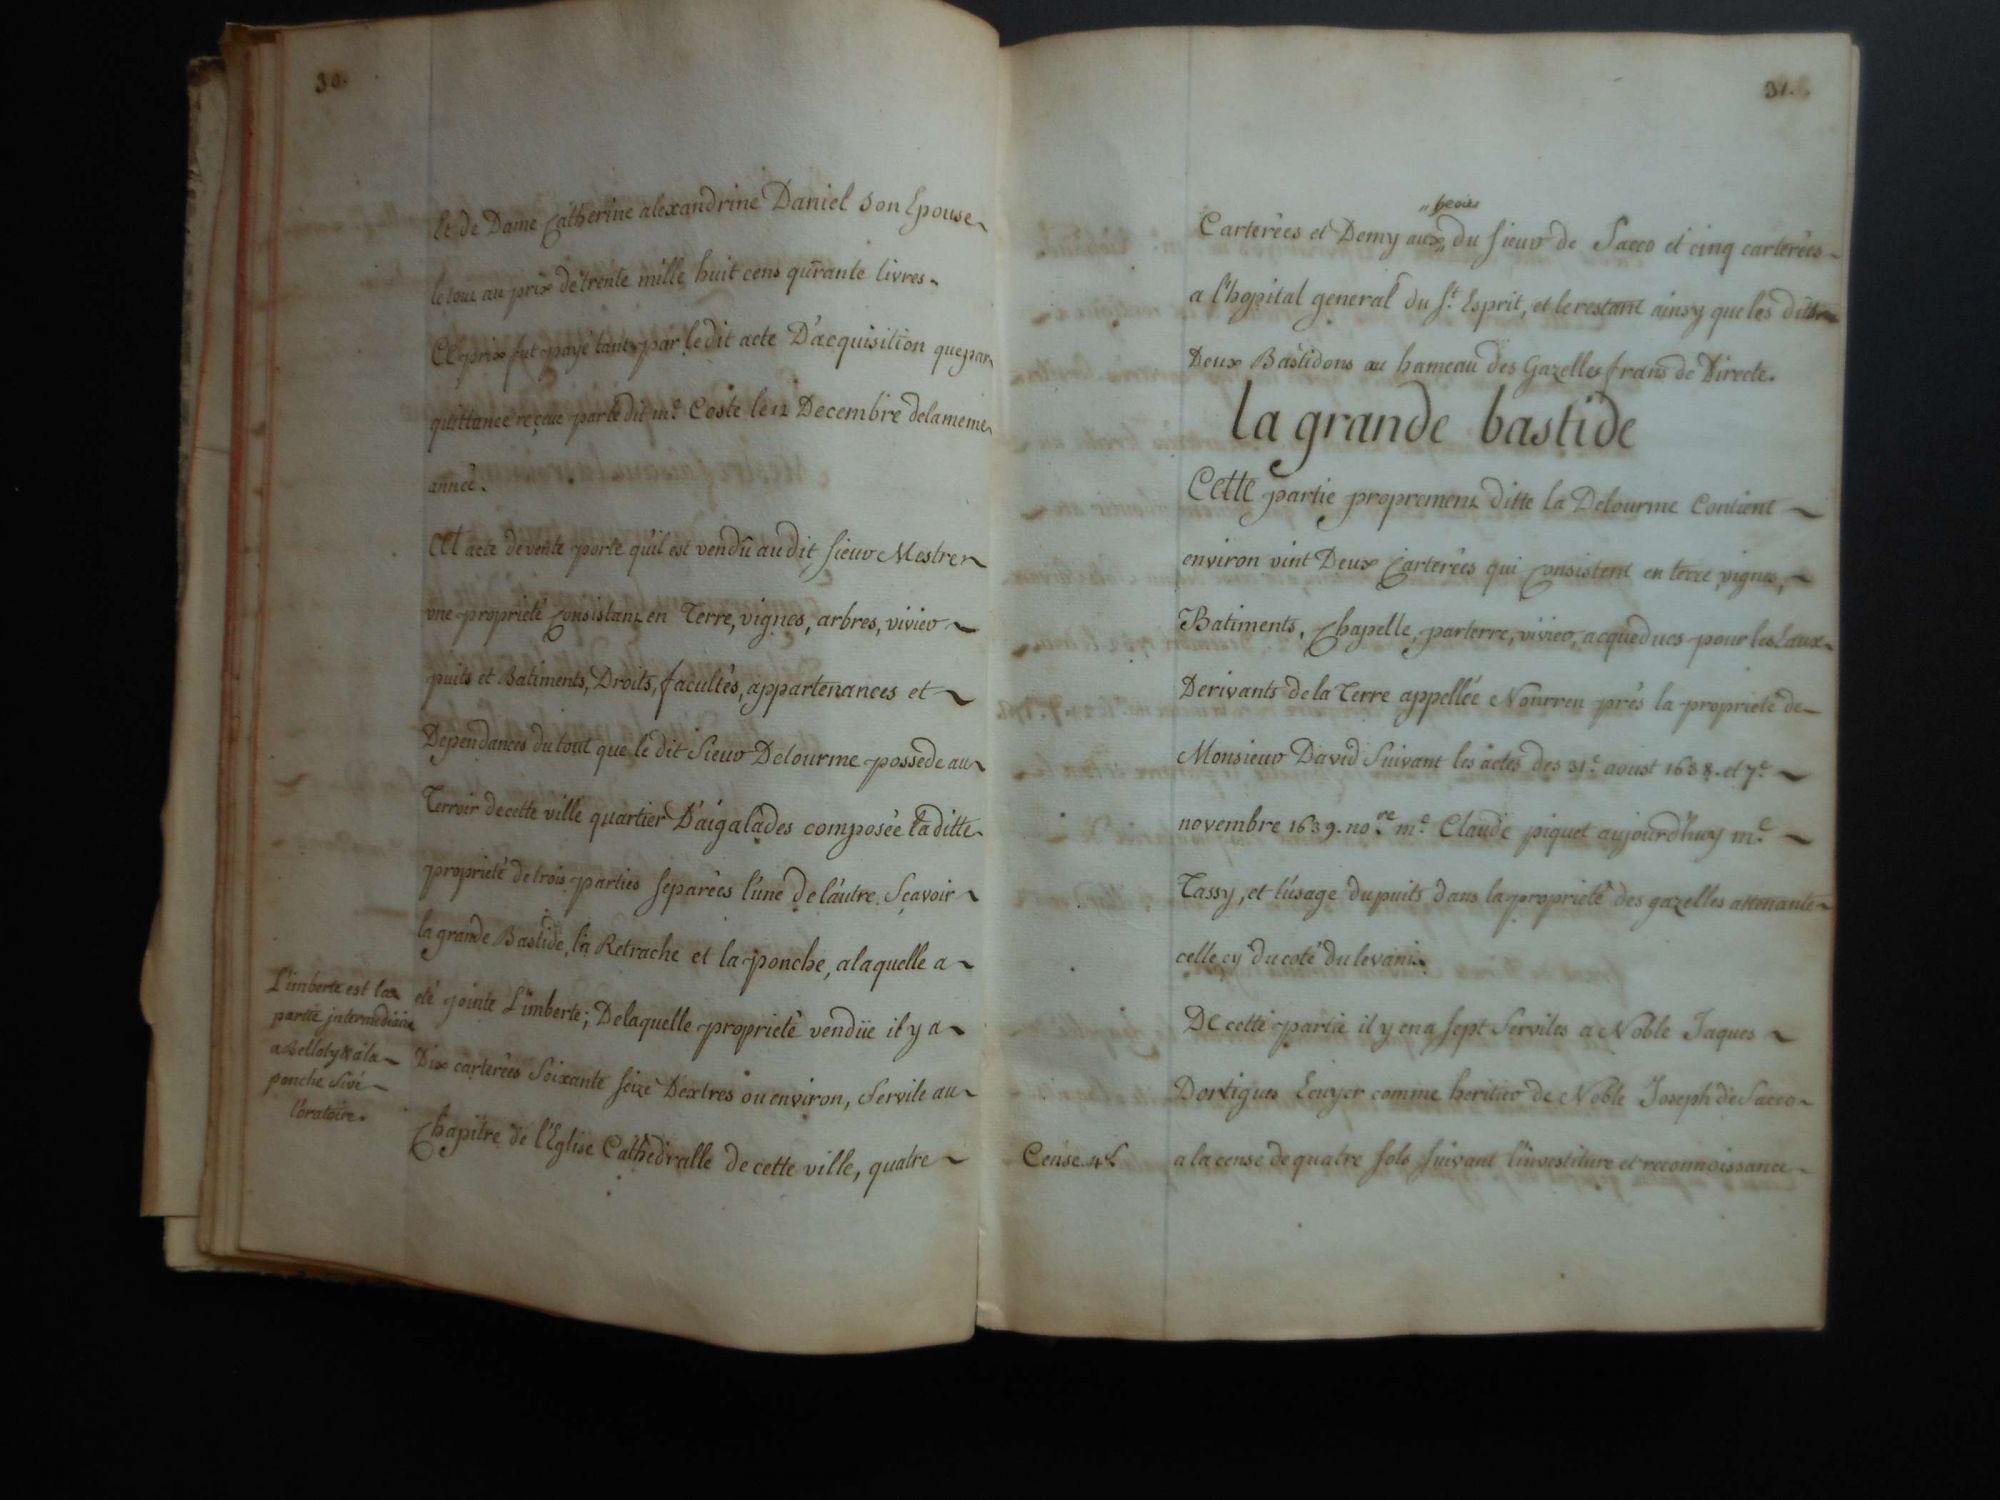 30.
Et de Dame Catherine alexandrine Daniel Son Epouse
le tout au prix de trente mille huit cens qu̅rante livres.
Ce prix fut payé tant par le dit acte D'acquisition que par
quittance reçeue par le dit me. Coste le 12 Decembre de la meme
année.
Cet acte de vente porte qu'il est vendû au dit Sieur Mestre
une proprieté Consistant en Terre, vignes, arbres, vivier
puits et Batiments, Droits, facultés, appartenances et
Dependances du tout que le dit Sieur Delourme possede au
Terroir de cette ville quartier D'aigalades composée la ditte
proprieté de trois parties Separées l'une de l'autre. Sçavoir
la grande Bastide, la Retrache et la ponche, a laquelle a
eté jointe L'imberte; De laquelle proprieté vendüe il y a
Dix carterées Soixante Seize Dextres ou environ, Servile au
Chapitre de l'Eglise Cathedralle de cette ville, quatre
L'imberte est la
partie intermediaire
a Belloty & a la
ponche Sivé
l'oratoire.
31.
Carterées et Demy aux hoirs du Sieur de Sacco et cinq carterées
a l'hopital general du St. Esprit, et le restant ainsy que les dits
Deux Bastidons au hameau des Gazelles francs de Directe.
la grande bastide
Cette partie proprement ditte la Delourme Contient
environ vint Deux Carterées qui Consistent en terre, vignes,
Batiments, Chapelle, parterre, vivier, acqueducs pour les Eaux
Derivants de la Terre appellée Nourren prés la proprieté de
Monsieur David Suivant les actes des 31e. aoust 1638. et 7e.
novembre 1639. nore. me. Claude piquet aujourd'huy me.
Tassy, et l'usage du puits dans la proprieté des gazelles attenante
celle cy du coté du levant.
De cette partie il y en a Sept Serviles a Noble Jaques
Dortigues Ecuyer comme heritier de Noble Joseph de Sacco
a la cense de quatre Sols Suivant l'investiture et reconnoissance
Cense 4s.